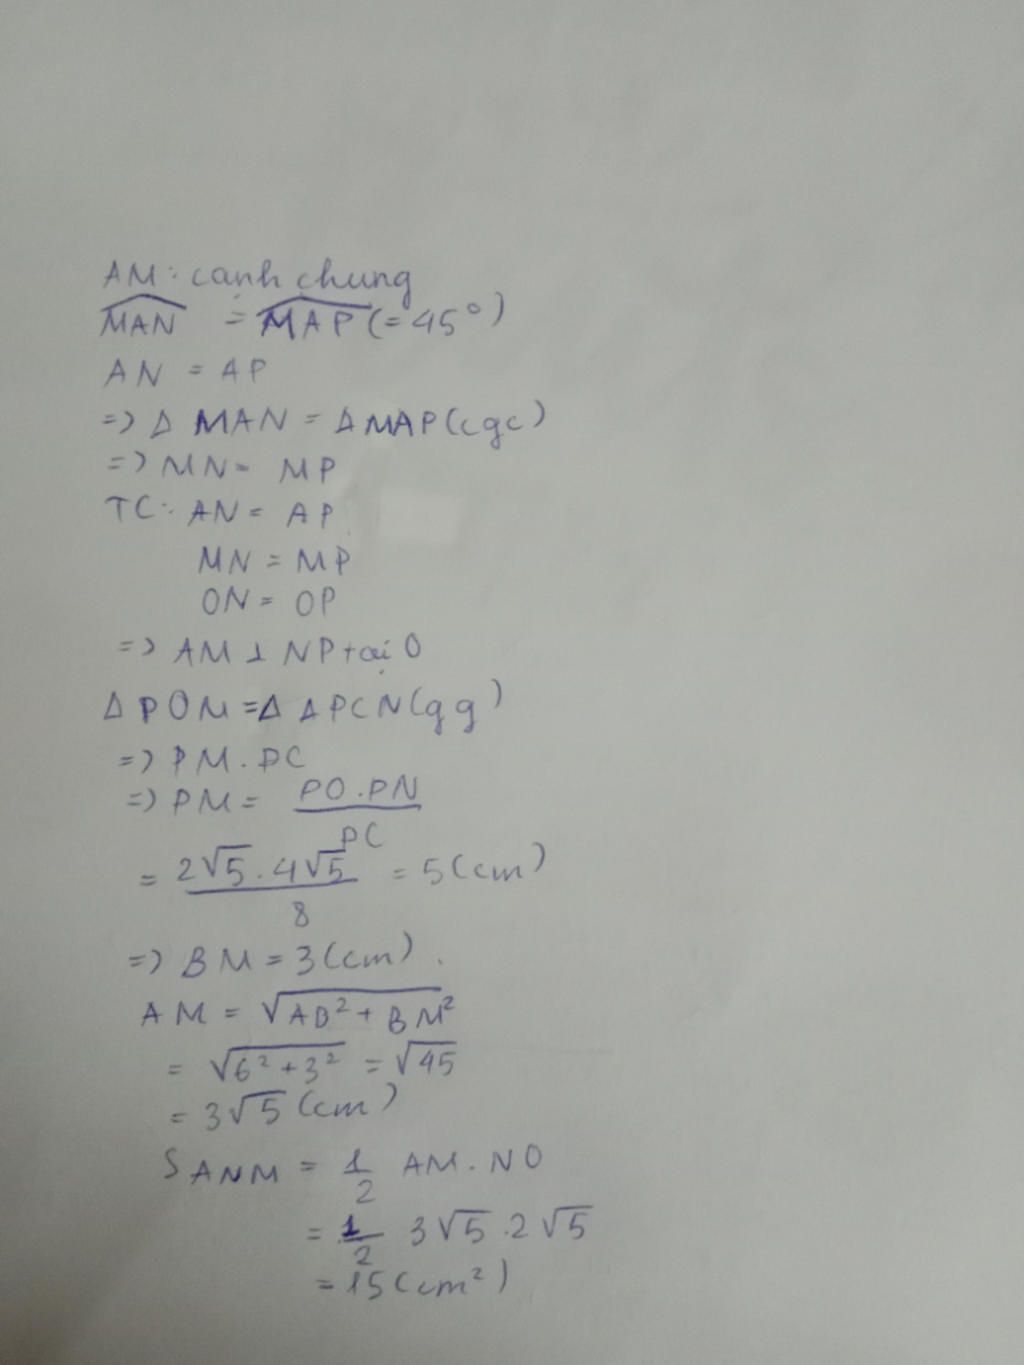 AM: cạnh chung
\widehat{MAN} = \widehat{MAP} (= 45°)
AN = AP
=> Δ MAN = Δ MAP (cgc)
=> MN = MP
TC: AN = AP
MN = MP
ON = OP
=> AM ⊥ NP tại O
Δ POM = Δ Δ PCN (gg)
=> PM. PC
=> PM = \frac{PO.PN}{PC}
= \frac{2√5.4√5}{8} = 5 (cm)
=> BM = 3 (cm).
AM = \sqrt{AB² + BM²}
= \sqrt{6² + 3²} = √45
= 3√5 (cm)
S ANM = \frac{1}{2} AM. NO
= \frac{1}{2} 3√5 .2√5
= 15 (cm²)